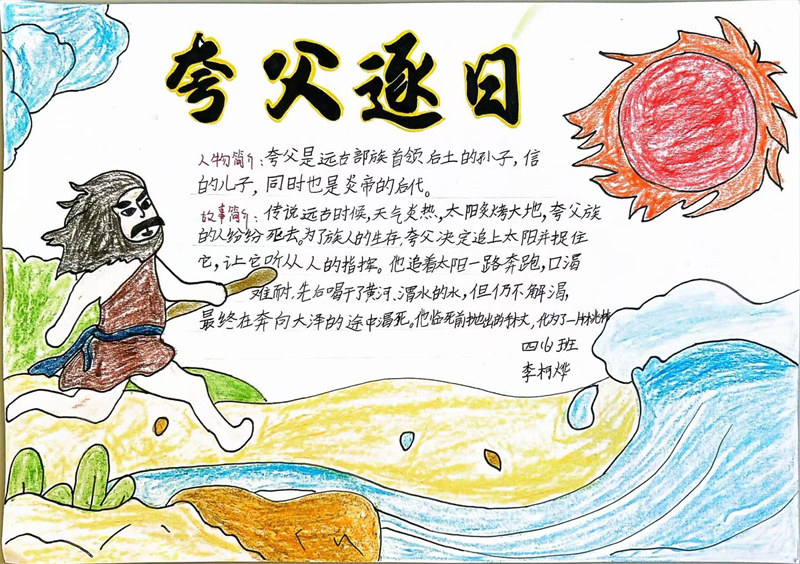 夸父逐日
人物简介:夸父是远古部族首领后土的孙子,信
的儿子,同时也是炎帝的后代。
故事简介:传说远古时候,天气炎热,太阳炙烤大地,夸父族
的人纷纷死去。为了族人的生存,夸父决定追上太阳并捉住
它,让它听从人的指挥。他追着太阳一路奔跑,口渴
难耐,先后喝干了黄河、渭水的水,但仍不解渴,
最终在奔向大泽的途中渴死。他临死前抛出的手杖,化为了一片桃林
四(6)班
李柯烨